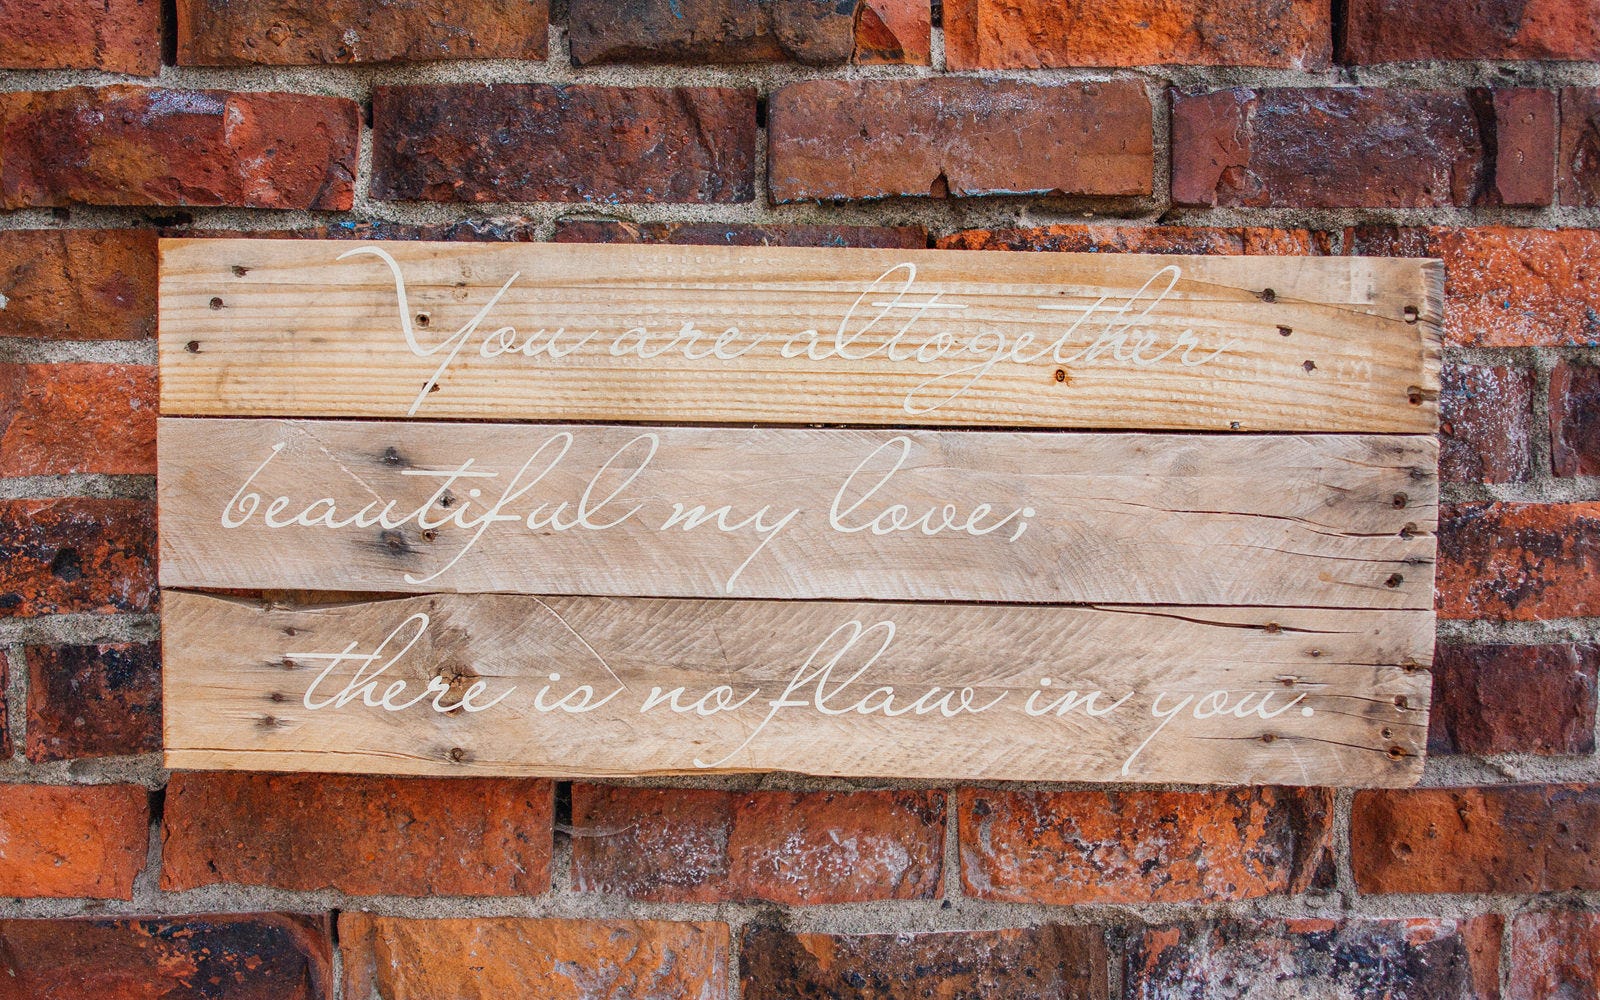 You are altogether
beautiful my love;
there is no flaw in you.